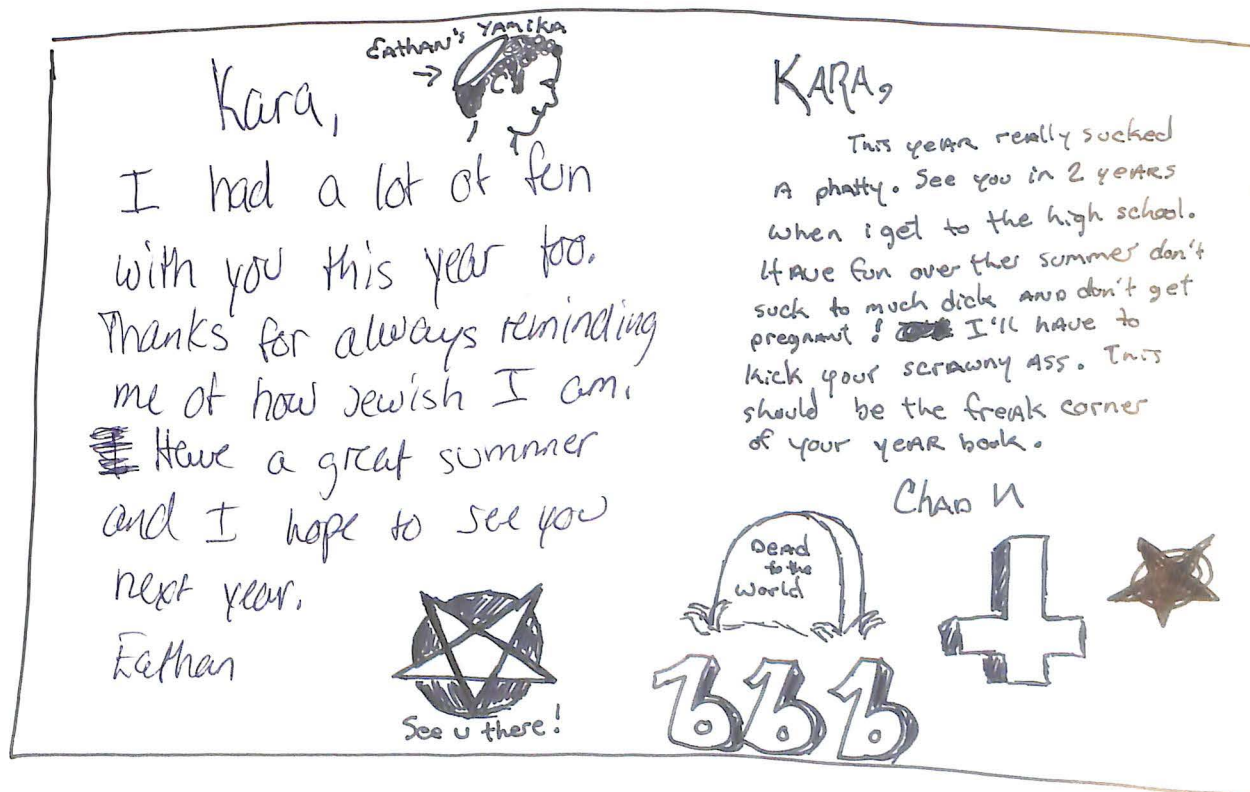 EAthAN's YAMiKA
Kara,
I had a lot of fun
with you this year too.
Thanks for always reminding
me of how Jewish I am.
Have a great summer
and I hope to see you
next year.
Eathan
See u there!
KARA,
This yeAR really sucked
A phatty. See you in 2 yeARs
when i get to the high school.
HAve fun over ther summer don't
suck to much dick AND don't get
pregnant! I'll hAve to
kick your scrawny Ass. This
should be the freak corner
of your yeAR book.
ChAD N
DeAd
to the
World
666